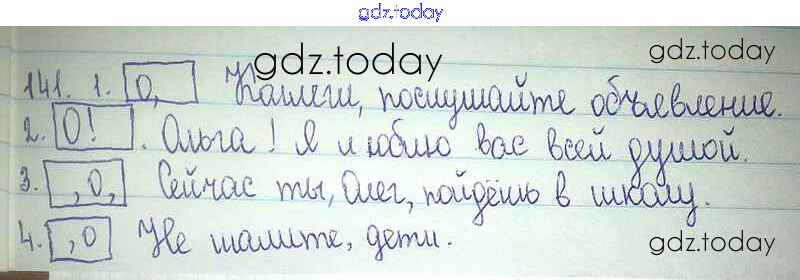 gdz.today
gdz.today
gdz.today
141. 1. О, Коллеги, послушайте объявление.
2. О! . Ольга! Я люблю вас всей душой.
3. , О, Сейчас ты, Олег, пойдёшь в школу.
4. , О Не шалите, дети.
gdz.today
gdz.today